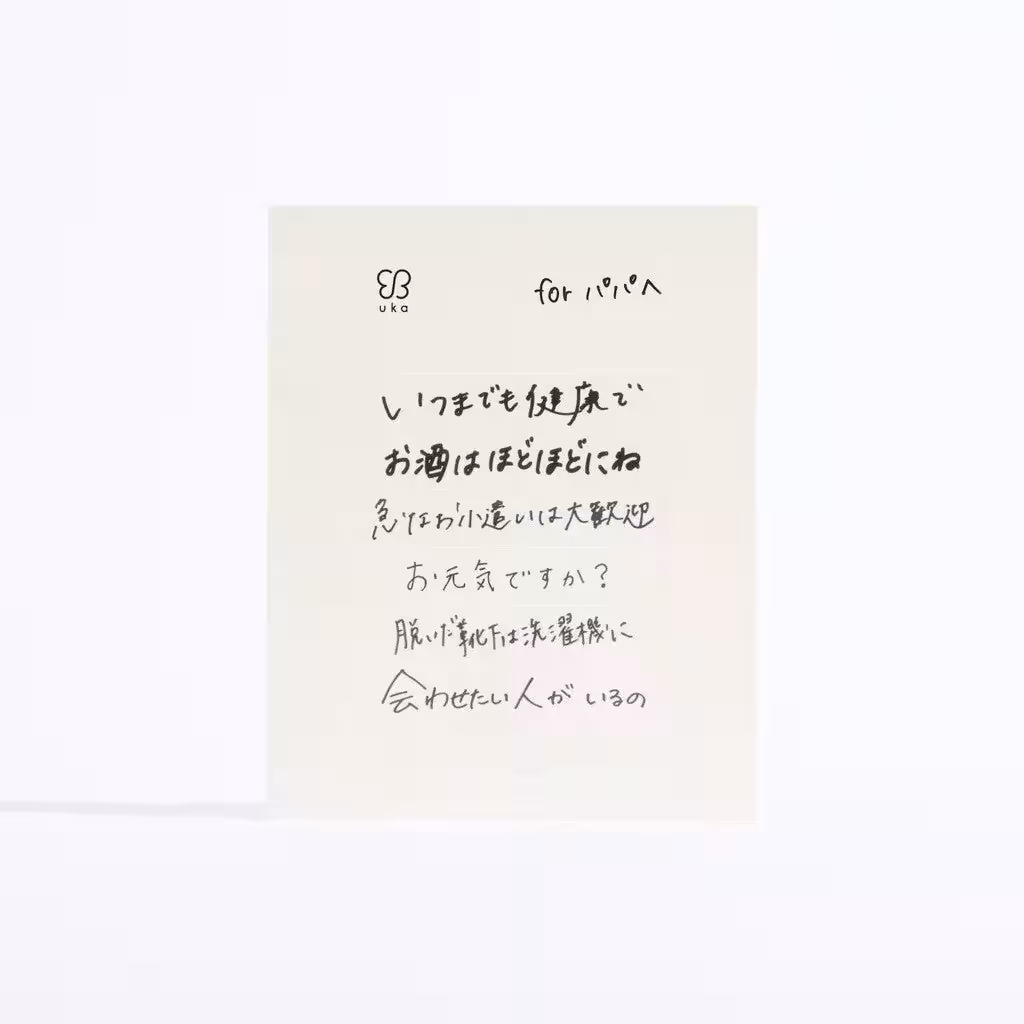 uka
for パパへ
いつまでも健康で
お酒はほどほどにね
急なお小遣いは大歓迎
お元気ですか？
脱いだ靴下は洗濯機に
会わせたい人がいるの